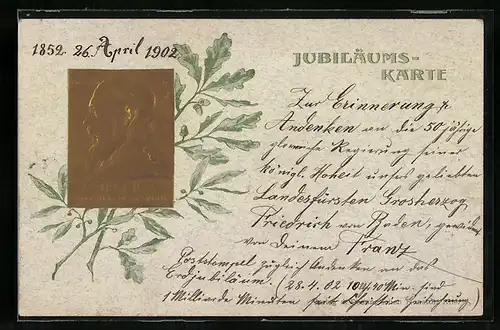 1852. 26. April 1902.
JUBILÄUMS-
KARTE
Zur Erinnerung &
Andenken an die 50 jährige
glorreiche Regierung seiner
königl. Hoheit unses geliebten
Landesfürsten Grosherzog
Friedrich von Baden, gewidmet
von Deinem Franz
Poststempell zugleich Andenken an das
Erdjubiläum. (28.4.02 10 Uhr 40 Min. sind
1 Milliarde Minuten seit Christi